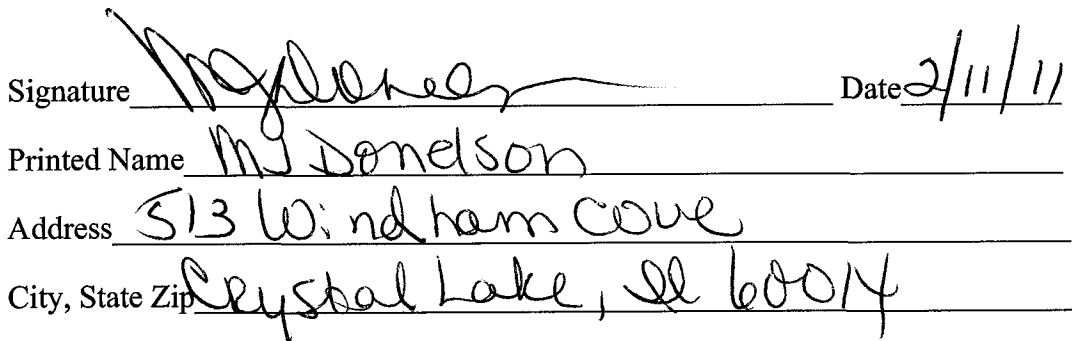 Signature MJ Donelson Date 2/11/11
Printed Name MJ Donelson
Address 513 Windham Cove
City, State Zip Crystal Lake, Il 60014